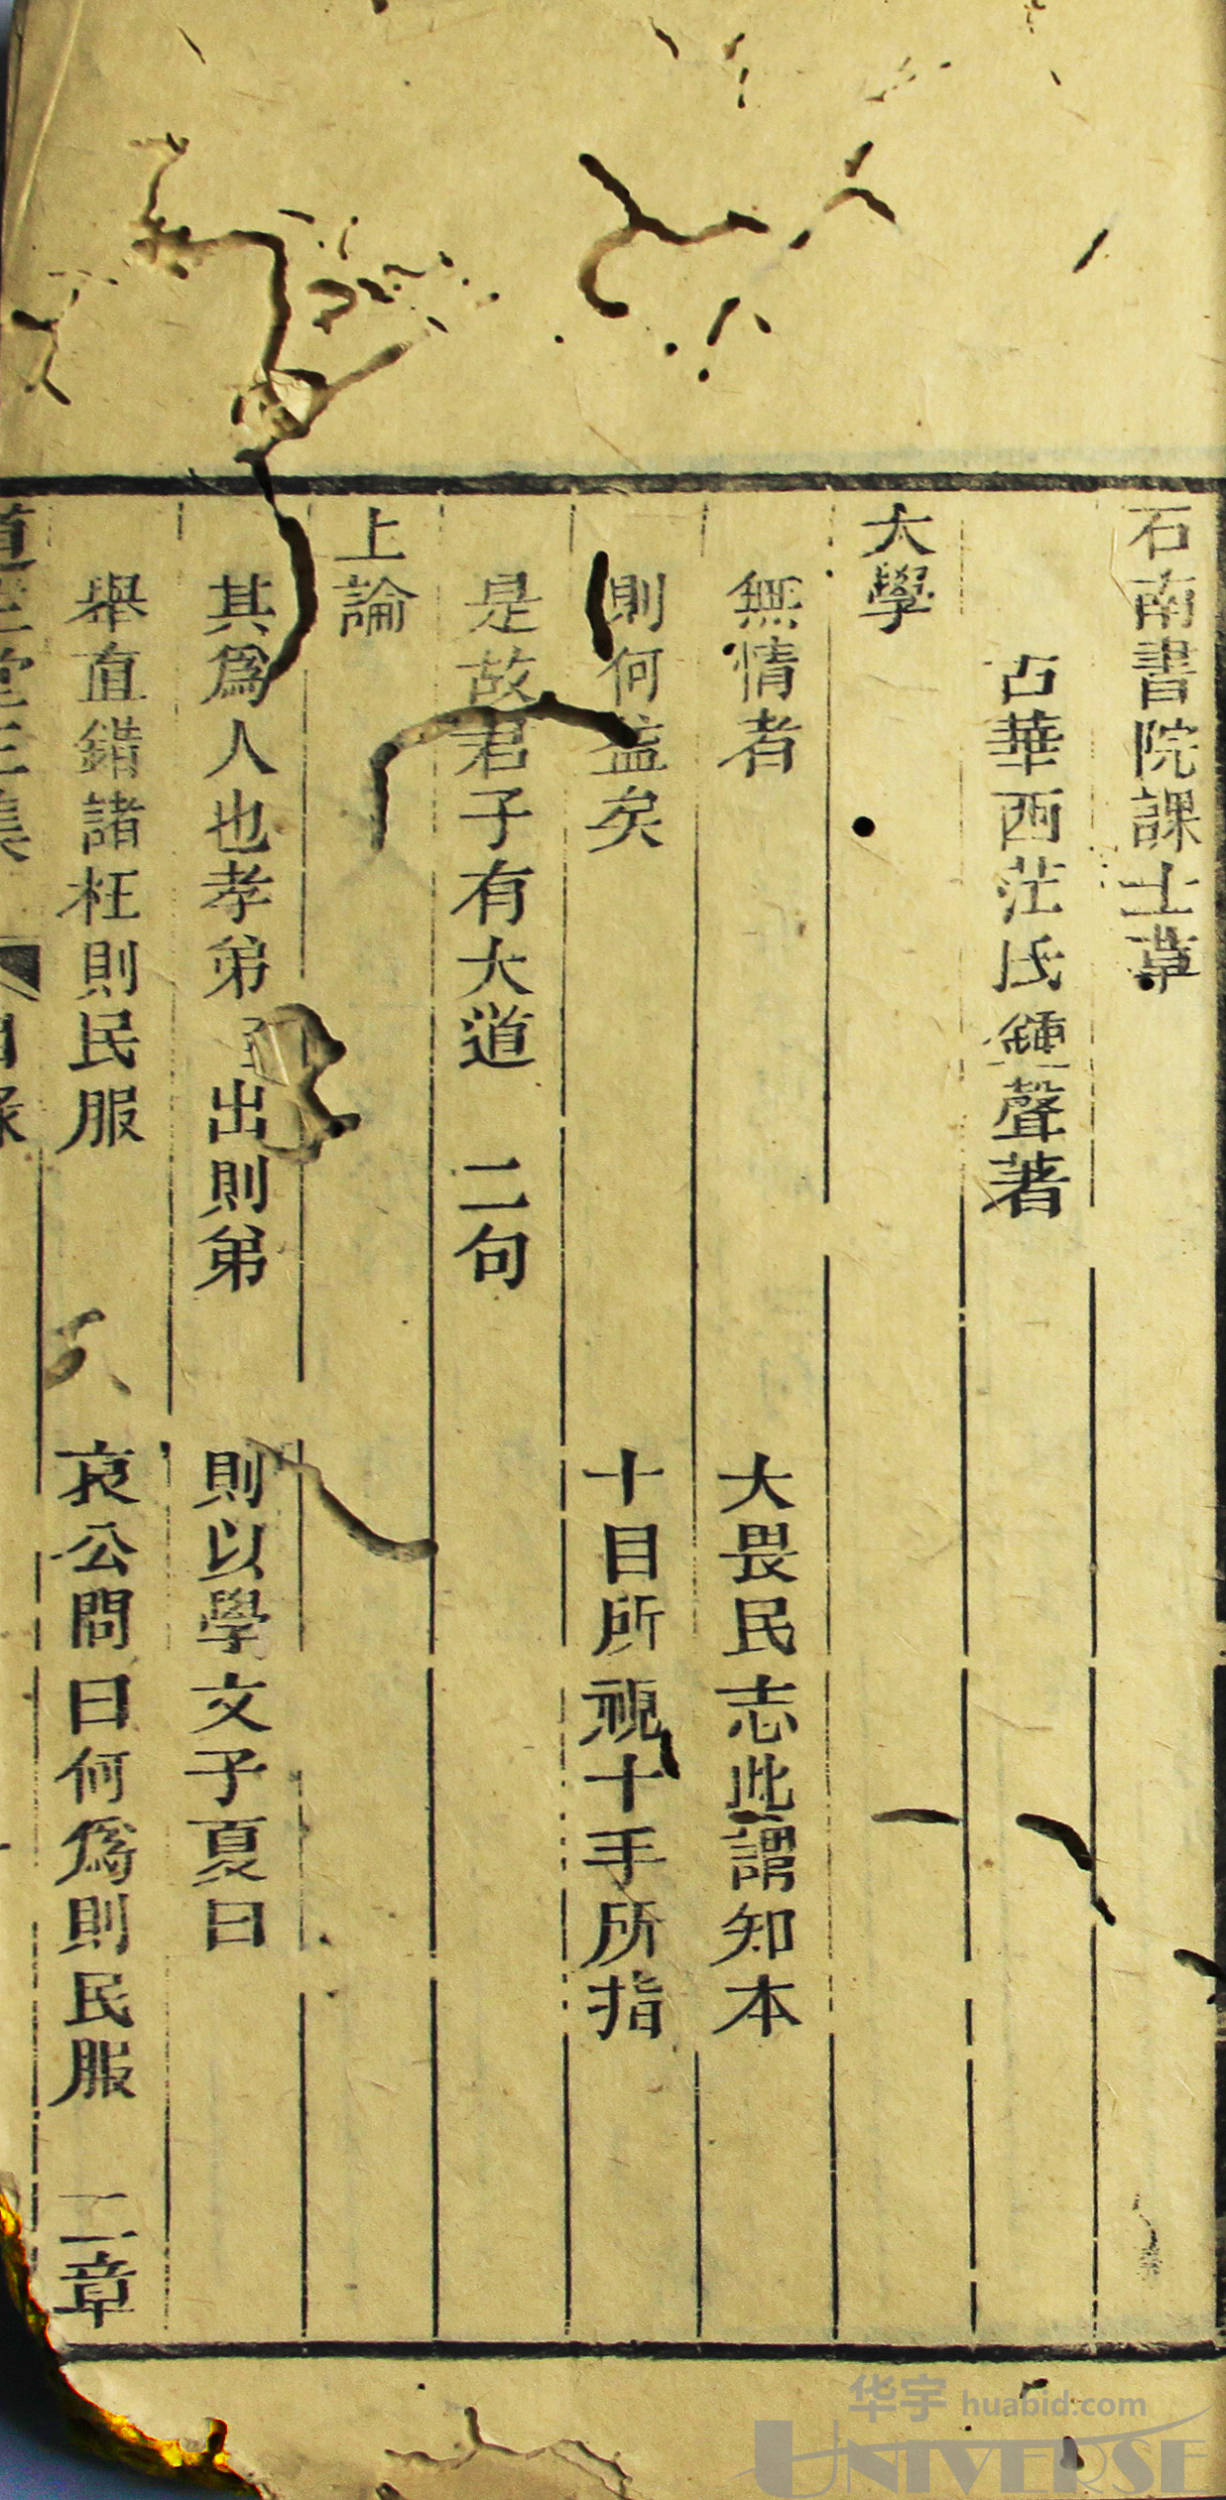 石南書院課士草
古華西茫氏鍾聲著
大學
無情者 大畏民志此謂知本
則何益矣 十目所視十手所指
是故君子有大道 二句
上論
其爲人也孝弟 出則弟 則以學文子夏曰
舉直錯諸枉則民服 哀公問曰何爲則民服 二章
目錄
华宇 huabid.com
UNIVERSE